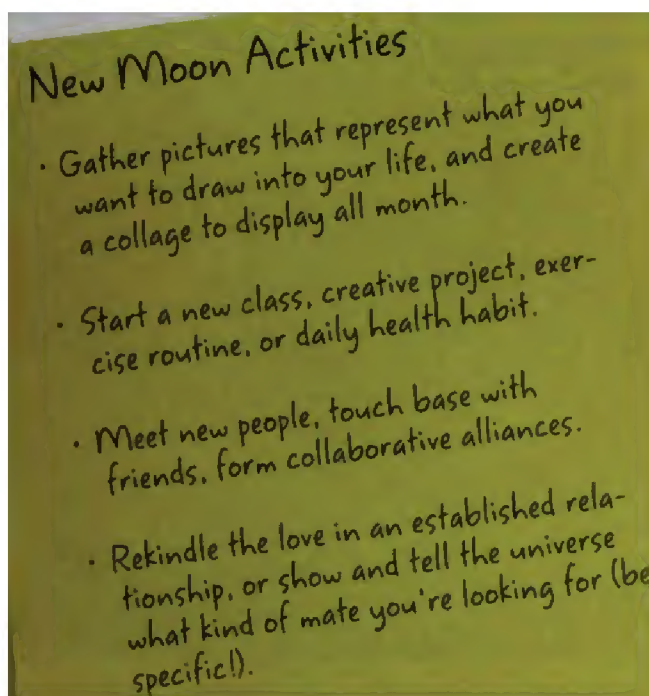 New Moon Activities
· Gather pictures that represent what you
want to draw into your life, and create
a collage to display all month.
· Start a new class, creative project, exer-
cise routine, or daily health habit.
· Meet new people, touch base with
friends, form collaborative alliances.
· Rekindle the love in an established rela-
tionship, or show and tell the universe
what kind of mate you're looking for (be
specific!).